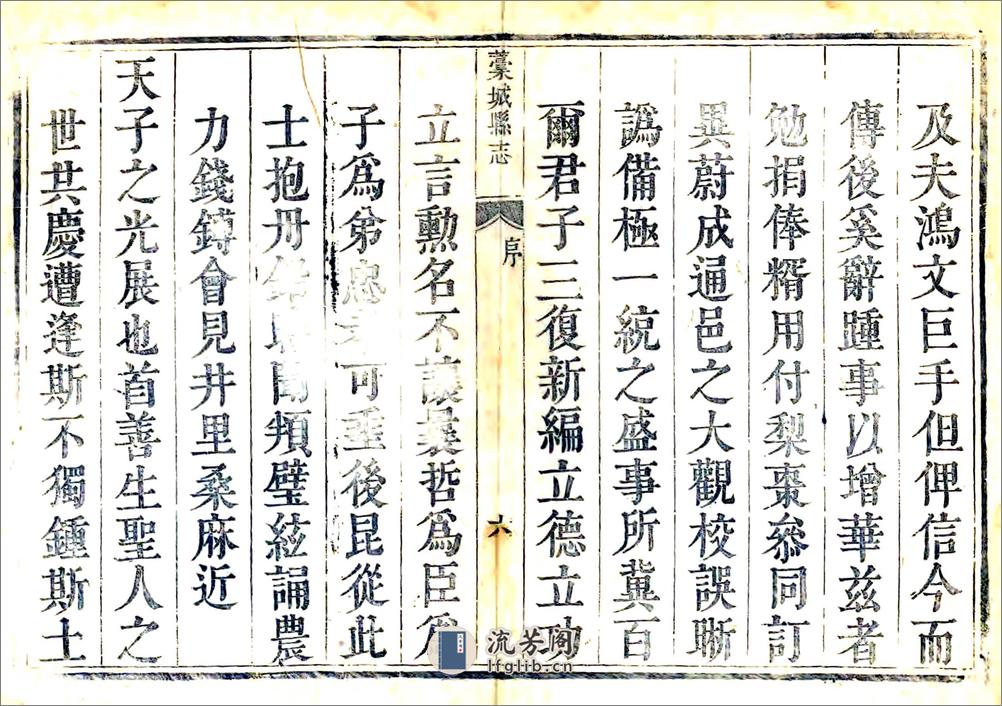 及夫鴻文巨手但俾信今而
傳後奚辭踵事以增華兹者
勉捐俸糈用付梨棗叅同訂
異蔚成通邑之大觀校誤晰
譌備極一統之盛事所冀百
爾君子三復新編立德立功
藁城縣志
序
六
立言勳名不讓曩哲爲臣爲
子爲弟忠孝可垂後昆從此
士抱丹鉛聞頖璧絃誦農
力錢鎛會見井里桑麻近
天子之光展也首善生聖人之
世共慶遭逢斯不獨鍾斯土
流芳阁
lfglib.cn